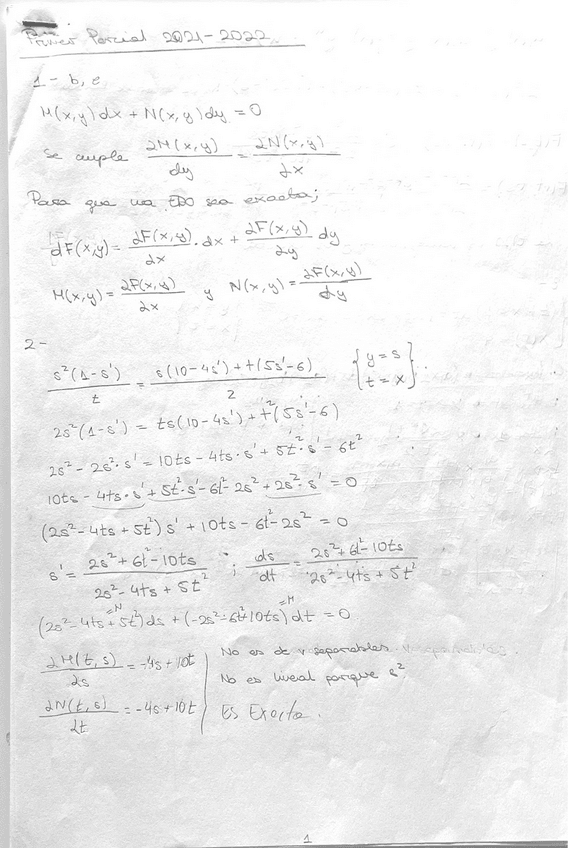 Primer Parcial 2021-2022
1- b, e
M(x,y)dx + N(x,y)dy = 0
Se cumple ∂M(x,y)/dy = ∂N(x,y)/∂x
Para que una EDO sea exacta;
dF(x,y) = ∂F(x,y)/∂x · dx + ∂F(x,y)/∂y dy
M(x,y) = ∂F(x,y)/∂x y N(x,y) = ∂F(x,y)/∂y
2-
s²(1-s')/t = s(10-4s')+t(5s'-6)/2 {y=s t=x}
2s²(1-s') = ts(10-4s')+t²(5s'-6)
2s² - 2s²·s' = 10ts - 4ts·s' + 5t²·s' - 6t²
10ts - 4ts·s' + 5t²·s' - 6t² - 2s² + 2s²·s' = 0
(2s² - 4ts + 5t²)s' + 10ts - 6t² - 2s² = 0
s' = 2s² + 6t² - 10ts/2s² - 4ts + 5t² ; ds/dt = 2s² + 6t² - 10ts/2s² - 4ts + 5t²
=N =M
(2s² - 4ts + 5t²)ds + (-2s² - 6t² + 10ts)dt = 0
∂M(t,s)/∂s = -4s + 10t
∂N(t,s)/∂t = -4s + 10t
No es de v separables
No es lineal porque s²
Es Exacta.
1